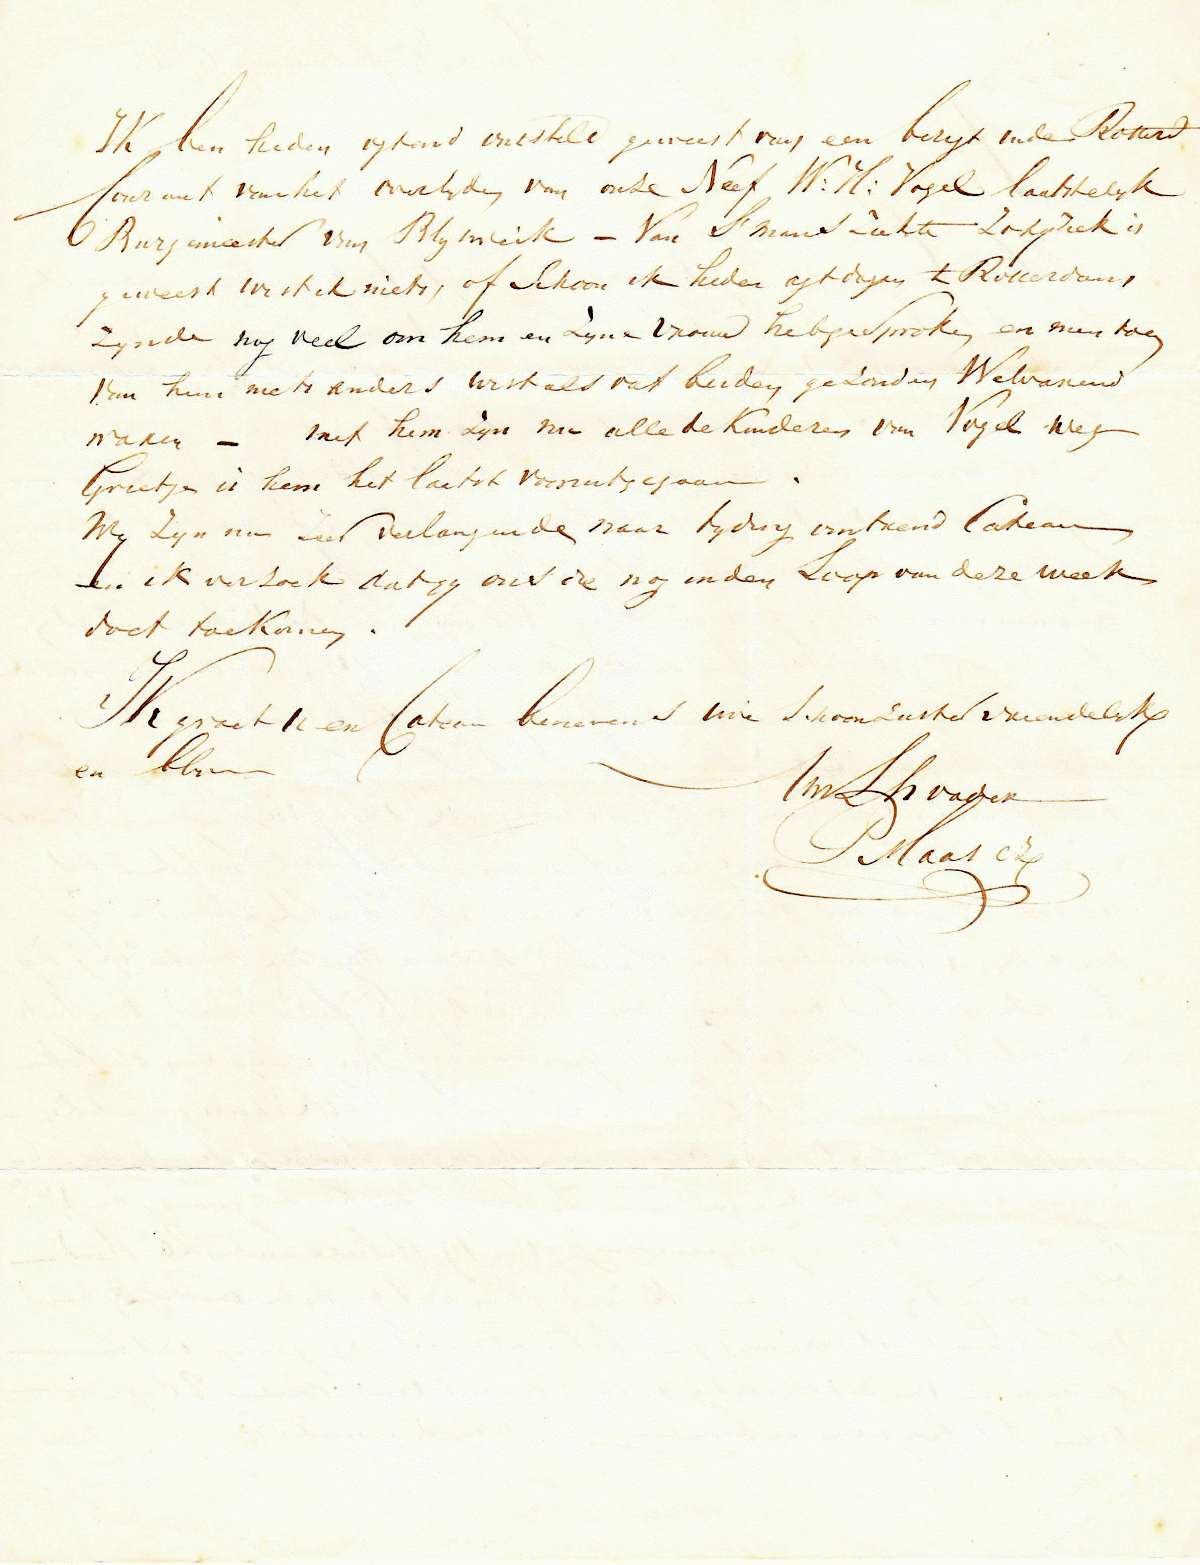 Ik ben heden ogtend ontsteld geweest van een berigt in de Rotterd
Courant van het overlyden van onze Neef W: H: Vogel laatstelyk
Burgemeester van Ryswick – Van S'mans ziekte
geweest wist ik niets, of schoon ik heden agt dagen t Rotterdam
zynde nog veel om hem en zyne vrouw heb gesproken en men toen
van hun niets anders wist als dat beiden gezond en Welvarend
waren – met hem zyn nu alle de Kinderen van Vogel weg
Grietje is hem het laatst vooruitgegaan.
Wy zyn nu zeer verlangende naar tyding omtrend Cateau
en ik verzoek dat gy ons die nog in den Loop van deze week
doet toekomen.
Ik groet U en Cateau benevens uwe schoonzuster vriendelyk
en blyve
Uw Schvader
P Maas CZ